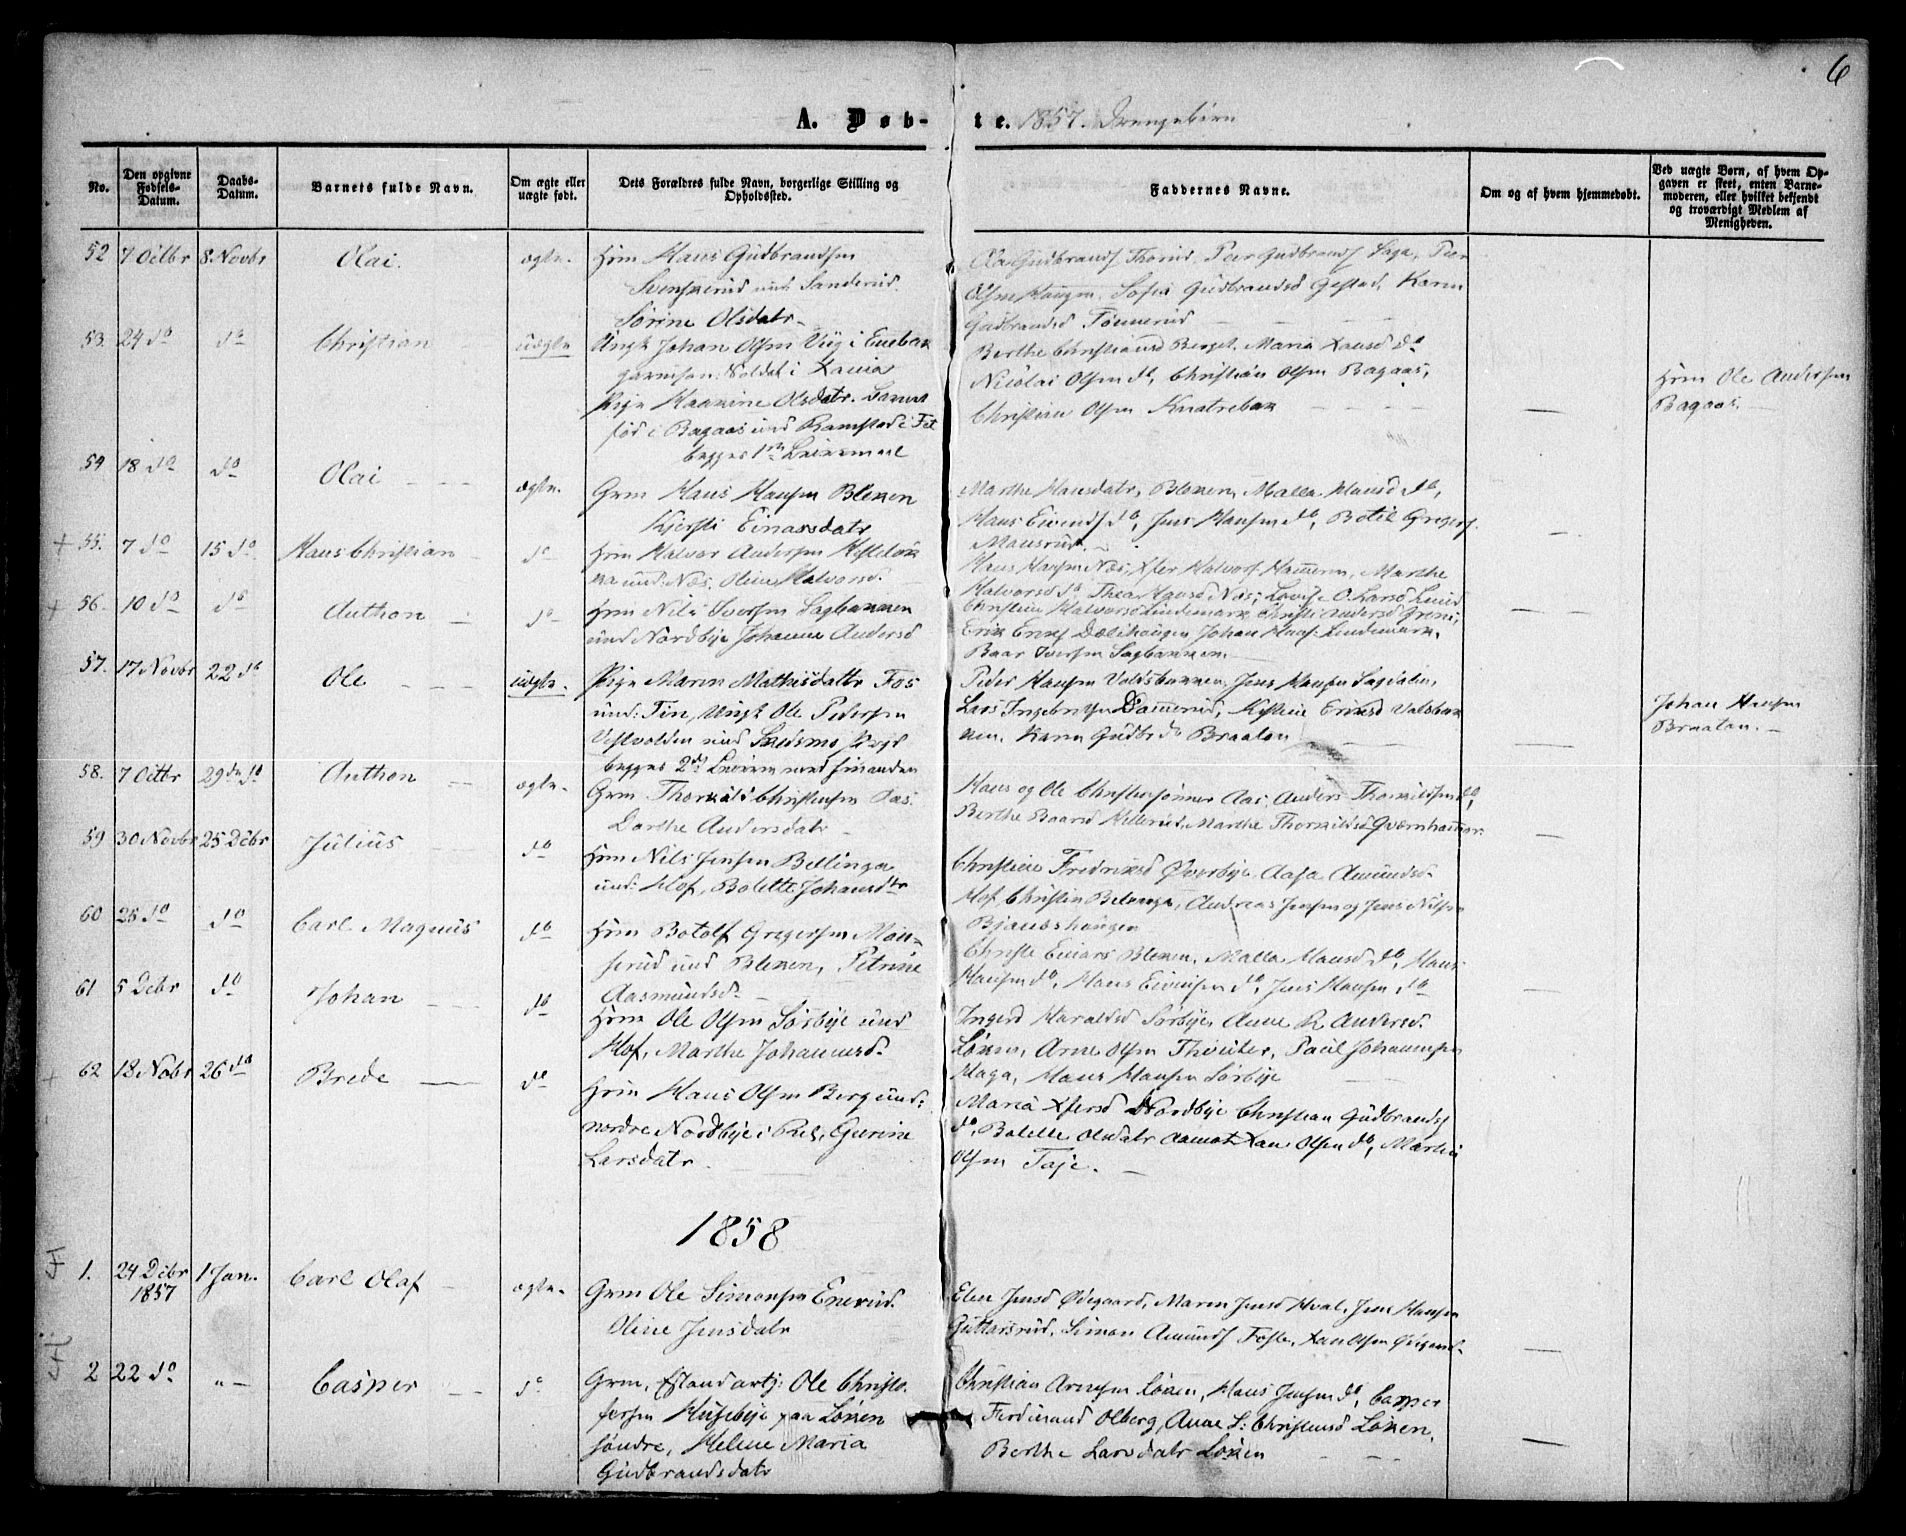 6
A. Døbte. 1857. Drengebørn
No.
Den opgivne Fødsels-Datum.
Daabs-Datum.
Barnets fulde Navn.
Om ægte eller uægte født.
Dets Forældres fulde Navn, borgerlige Stilling og Opholdssted.
Faddernes Navne.
Om og af hvem hjemmedøbt.
Ved uægte Børn, af hvem Opgaven er skeet, enten Barnemoderen, eller hvilket bekjendt og troværdigt Medlem af Menigheden.
52 7 Octbr 8 Novbr Olai. ægte.
Hsm Hans Gudbrandsen
und: Sanderud.
Sörine Olsdatr
Ola Gudbrands Thorud, Peer Gudbrands Haga, Peer
Olsen Haugen, Sofia Gudbrandsd Gystad, Karen
Gudbrandsd Tömmerud
53. 24 do do Christian uægte
Ungk Johan Olsen Viig i Enebak
garnison: Soldat i Xania
Pige Maarine Olsdatr. Barnet
föd i Bagaas und Ramstad i Fet
begges 1ste Leiermaal
Berthe Christiansd Berget. Maria Hansd do
Nicolai Olsen do, Christian Olsen Bagaas,
Christian Olsen Knatrebak
Hsm Ole Andersen
Bagaas.
54 18 do do Olai ægte.
Grm Hans Hansen Bleken
Kjersti Einarsdatr
Marthe Hansdatr, Bleken, Malla Hansd do,
Hans Eivends do, Jens Hansen do, Botil Gregers.
Mausrud.
55. 7 do 15 do Hans Christian do
Hsm Halvor Andersen
und: Næs, Oline Halvorsd.
Hans Hansen Næs, Xfer Halvors Hammeren, Marthe
Halvorsd do Thea Hansd Næs, Lovise O. Larsd Lund
56. 10 do do Anthon do
Hsm Nils Iversen Sagbakken
und Nordbye Johanne Andersd
Christine Halvorsd Lindemark, Christi Andersd Groni,
Erik Eriks Dælihaugen Johan Hans: Lindemark,
Baar Iversen Sagbakken
57. 17 Novbr 22 do Ole uægte.
Pige Maren Mathisdattr Fos
und: Tin, Ungk Ole Pedersen
Vestvolden und Skedsmo Prgd
begges 2det Leierm med hinanden
Peder Hansen Valdsbakken, Jens Hansen Sagdalen,
Lars Ingebretsen Dammerud, Kirstine Eriksd Valsbak
ken. Karen Gudbrd Braaten
Johan Hansen
Braaten.
58. 7 Octbr 29de do Anthon ægte.
Grm Thorkil Christensen Aas.
Dorthe Andersdatr
Hans og Ole Christensönner Aas, Anders Thorkildsen do,
Berthe Baarsd Hellerud, Marthe Thorkildsd Qværnhammer.
59 30 Novbr 25 Debr Julius do
Hsm Nils Jensen Bellinga
und: Hof, Bolette Johansdtr
Christine Fredriksd Øverbye, Aasa Amundsd
Hof Christin Belunga, Andreas Jensen og Jens Nilsen
Bjanshaugen
60 25 do do Carl Magnus do
Hsm Botolf Gregersen Mau-
serud und Bleken, Petrine
Aasmundsd
Christi Einars Bleken, Malla Hansd do, Hans
Hansen do, Hans Eivinsen do, Jens Hansen do
61 5 Debr do Johan do
Hsm Ole Olsen Sörbye und
Hof, Marthe Johannesd.
Ingerd Haraldsd Sörbye, Anne R. Andersd.
Löken, Arne Olsen Thviter, Paul Johannesen
Haga, Hans Hansen Sörbye
62 18 Nobr 26 do Brede do
Hsm Hans Olsen Berg und:
nordre Nordbye i Rel, Gurine
Larsdatr.
Maria Xfersd Nordbye Christian Gudbrands
do, Bolette Olsdatr Aamot Xan Olsen do, Martin
Olsen Taje.
1858
1. 24 Debr 1857 1 Jan. Carl Olaf ægte.
Grm Ole Simonsen Enerud.
Oline Jensdatr
Elen Jensd Ødegaard, Maren Jensd Hval, Jens Hansen
Guttarsrud, Simon Amunds Foste, Xan Olsen Ødegaard
2 22 do „ Casper do
Grm, Ole Christo-
fersen Husebye paa Löken
söndre, Helene Maria
Gudbrandsdatr
Christian Arnesen Löken, Hans Jensen do, Casper
Ferdinand Olberg, Anne L: Christensd Löken,
Berthe Larsdatr Löken